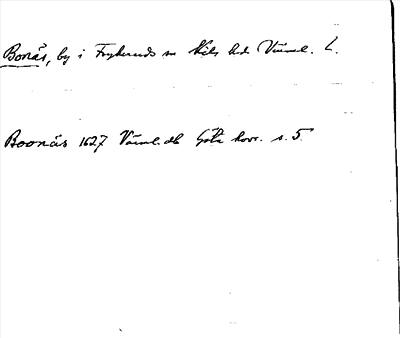 Bonäs, by i Frykeruds sn Kils hd Värml. L.
Boonäs 1627 Värml. db Göta hovr. s. 5.